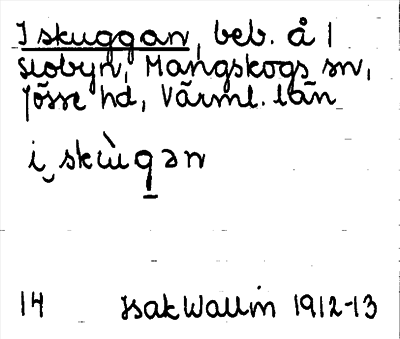 I skuggan, beb. å 1
Slobyn, Mangskogs sn,
Jösse hd, Värml. län
i͜ skùq̱ən
14 Isak Wallin 1912-13